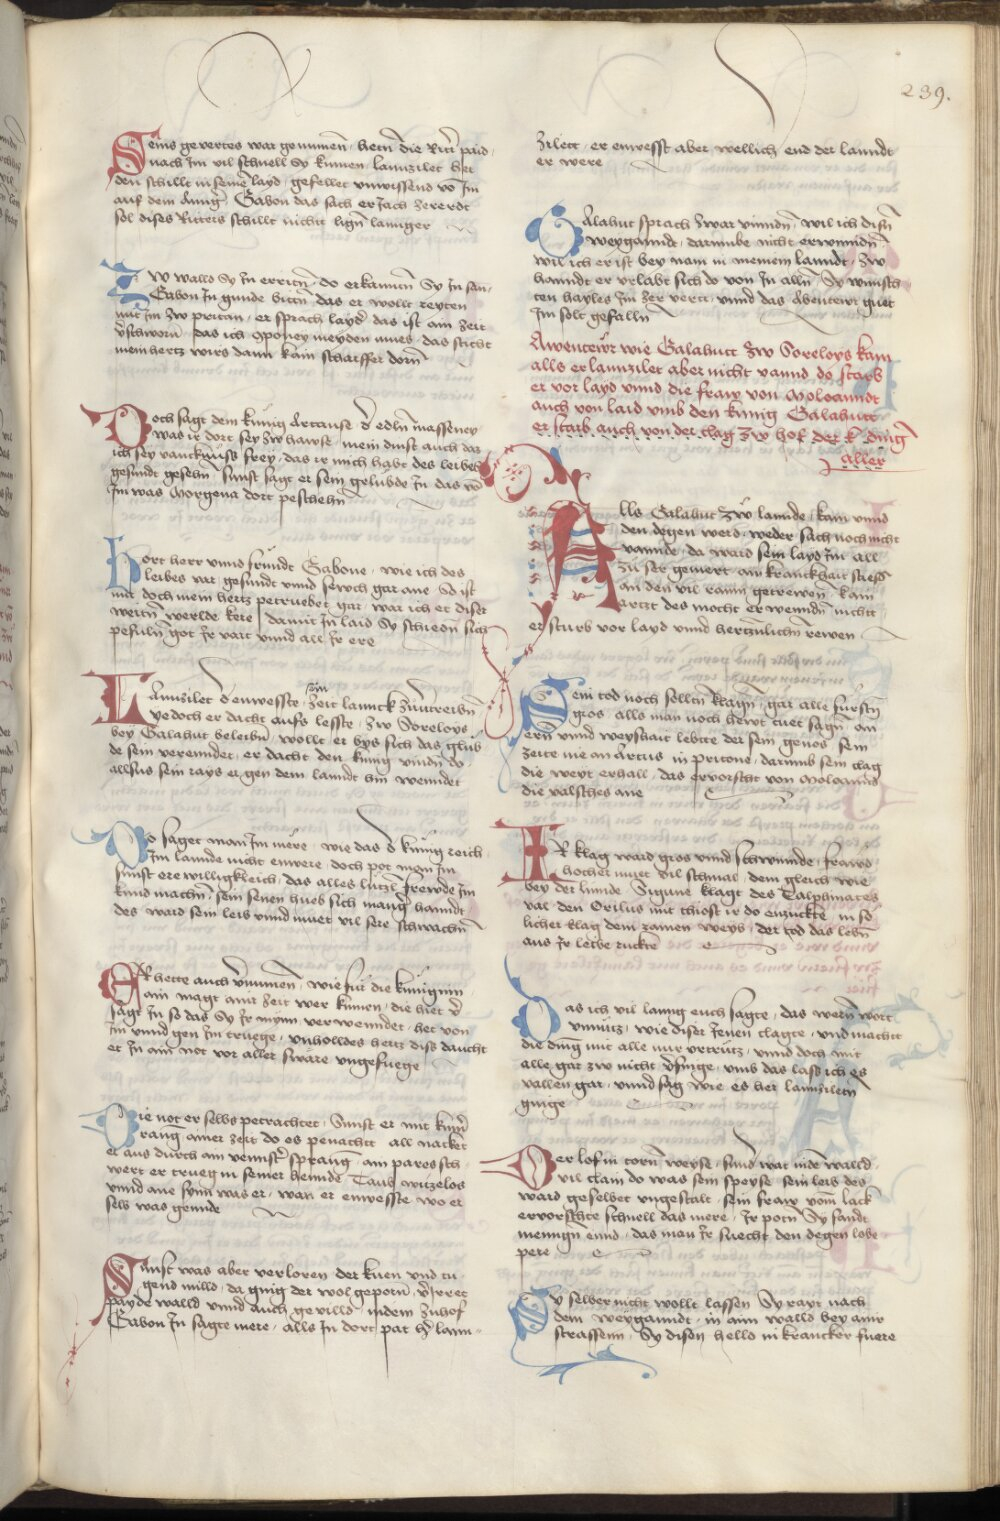 239.
Seins gevertes war genummen hern die Ritr paid
nach Im vil schnell Sy kumen lannzilet het
den schillt in seinē layd gefellet unwissend vō Im
auf dem Annger Gabon das sach er Iach zererdt
sol dises Ritters schillt nicht lign lannger
Zw walld Sy In erritn do erkannten Sy In san
Gabon In gunde bittn das er wollt reyten
mit Im zw pritan er sprach layd das ist ain zeit
v̄schworn das ich Sponey meyden mues das sticht
mein hertz wirs dann kain scharffer dorn
Doch sagt dem kunig Artause d̄ edln masseney
was ir dort sey zw hawse mein dinst auch das
ich sey vancknuss frey das ir mich habt des leibes
gesundt gesehn sunst sagt er sein gelubde In das vō
Im was Morgena dort peschehn
Hort herr vnnd frundt Gabone wie ich des
leibes var gesundt vnnd sewch gar ane So ist
mit doch mein hertz petruebet gar war ich er diser
werltn werlde kere damit In laid Sy schiedn sich
pefuln got Ir vart vnnd all Ir ere
Lannzilet d enwesste zw zeit lannck zuu treibn
yedoch er dacht aufs lesste zw Soreloys
bey Galahut beleibn wollt er bys sich das glub
de sein verenndet er dacht den kunig vindn do
allsus sein rays er gen dem lanndt hin wenndet
Do saget man Im mere wie das d̄ kunig reich
Im lannde nicht enwere doch pot mon Im
sunst ere willigkleich das alles lutzl frewde Im
kund machn sein senen hueb sich mangr hanndt
des ward sein leib vnnd muet vil sere schwachn
Er hette auch v̄nummen wie fur die kunginn
ain magt ainr zeit wer kumen die hiet v̄
sagt In so das Sy Ir mynn verwenndet het von
Im vnnd gen Im truege vnholldes hertz diss daucht
er In ain not vor aller sware vngefuege
Die not er selbs petrachtet Sunst er mit kumr
rang ainer zeit do es penachtt all nacket
er aus durch ain vennstr sprang ain pares sch
wert er trueg in seiner hennde Taub wizelos
vnnd ane synn was er wan er enwesste wo er
selb was genende
Sunst was aber verloren der kuen vnd tu
gend milld da ging der wol geporn v̄irret
payde walld vnnd auch gevilld indem zuhof
Gabon In sagte mere alls In dort pat hr lann
zilett er enwesst aber wellich end der lanndt
er were
Galahut sprach zwar vinndn wil ich disn
weyganndt darumbe nicht erwinndn
wil ich er ist bey nam in meinem lanndt zw
hanndt er vrlabt sich do von In alln Sy wunsch
ten hayles Im zer vert vnnd das Abentewr guet
Im solt gefalln
Awentewr wie Galahutt zw Soreloys kam
alls er lannzilet aber nicht vannd do starb
er vor layd vnnd die fraw von Moloanndt
auch von laid vmb den kunig Galahutt
er starb auch von der clag zw hof der k ding
aller
Alls Galahut zw lannde kam vnnd
den degen werd weder sach noch nicht
vannde da ward sein layd Im all
zu ser gemert ain kranckhait stiess
an den vil raunn getrewen kain
artzt des mocht er wenndn nichtt
er sturb vor layd vnnd hertznlichn rewen
Sein tod noch solltn klagn gar alle fursten
gros alls man noch hewt tuet sagn an
ern vnnd weyshait lebtte der sein genos sein
zeite nie an Artus in pritone darumb sein clag
die weyt erhall das ervorscht von Moloanndt
die valsches ane
Ir klag ward gros vnnd schwunde frawd
hocher muet vil schmal dem gleich wie
bey der linnde Sigune klagt des Talphinares
val den Orilus mit thiost ir do enzuckte in sō
licher klag dem zamen weyb der tod das lebn
aus Ir leibe ruckte
Das ich vil lanng euch sagte das wern wort
vnnutz wie diser Iennen clagte vnd macht
die ding mit alle nur vrtrutz vnnd doch mit
alle gar zw nicht v̄finge vmb das lass ich es
vallen gar vnnd sag wie es her lannziletn
ginge
Der lof in torn weyse sund war inden walld
vil clain do was sein speyse sein leib des
ward geselbet vngestalt sein fraw vom lack
ervorschte schnell das mere Ir potn Sy sandt
mennign ennd das man Ir suecht den degen lobe
pere
Sy selber nicht wollt lassen Sy rayt nach
dem weyganndt in ain walld bey ainr
strassenn Sy disen helld in krancker fuere